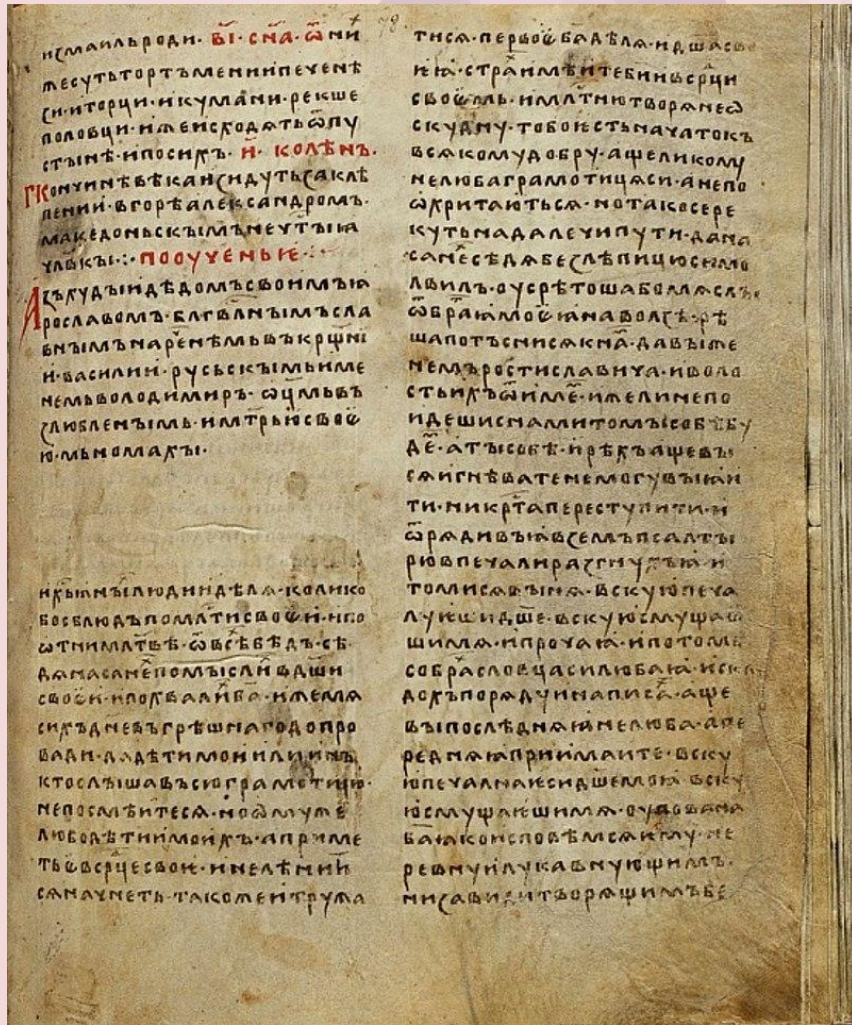 измаилъроди · в҃і · сн҃а · ѿни
жесутьтортъменииипеченѣ
зи · иторци · икумани · рекше
половци · ижеисходѧтьѿпу
стынѣ · ипосихъ · и҃ · колѣнъ ·
кончинѣвѣкаизидутьзаклѣ
пении · вгорѣалександромъ ·
македоньскымънеч҃тыꙗ
члвкы ⁘ поѹченье ⁘
Азъхудыидѣдомъсвоимъꙗ
рославомъ · блгв҃лнымъсла
внымънаре҃нѣмьвъкрщ҃ні
и · василии · русьскымьиме
немьволодимиръ · ѡц҃мьвъ
злюбленымь · имт҃рьюсвое
ю · мьномахы ·
ихр҃ьꙗныхълюдиидѣлѧ · колико
босблюдъпомлт҃исвоеи · ипо
ѡтнимлт҃вѣ · ѿвсѣхбѣдъ · сѣ
дѧнасанехъпомыслихвдш҃и
своеи · ипохвалихба҃ · ижемѧ
сихъдневъгрѣшнагодопро
вади · дадѣтимоиилиинъ
ктослышавъсюграмотицю ·
непосмѣитесѧ · ноѡмуже
любодѣтиимоихъ · априме
тьевсрцесвое · инелѣнитї
сѧначнеть · такожеитружа
тисѧ · первоебадѣлѧ · идш҃асв
еꙗ · страхимѣитеби҃ивсрци
своемь · имлт҃нютворѧнеѡ
скудну · тобоестьначатокъ
всѧкомудобру · ащеликому
нелюбаграмотицѧси · анепо
ѡхритаються · нотакосере
куть · надалечипути · дана
санехъсѣдѧбезлѣпицюсимо
лвилъ · оусрѣтошабомѧсл
ѿбра҃ꙗмоеꙗнаволзѣ · рѣ
шапотъснисѧкна҃ · давыже
немъростиславича · иволо
стьихъѿиме҃ · ижелинепо
идешиснамитомысобѣбу
де҃ · атысобѣ · ирѣхъащевы
сѧигнѣваетенемогувыꙗи
ти · никр҃тапереступити · и
ѿрѧдивъꙗвземъпсалты
рювпечалиразгнухъꙗ · и
томисѧвынѧ · вскуюпеча
луешидш҃е · вскуюсмущае
шимѧ · ипрочаꙗ · ипотомь
собрахсловцасилюбаꙗ · искла
дохъпорѧдуинаписа҃ · аще
выпослѣднѧꙗнелюба · апе
реднѧꙗприимаите · вску
юпечалнаесидш҃емоꙗ · вску
юсмущаешимѧ · оуповаина
ба҃ꙗкоисповѣмсѧꙗму · не
ревнуилукавнующимъ ·
низавидитворѧщимъбе